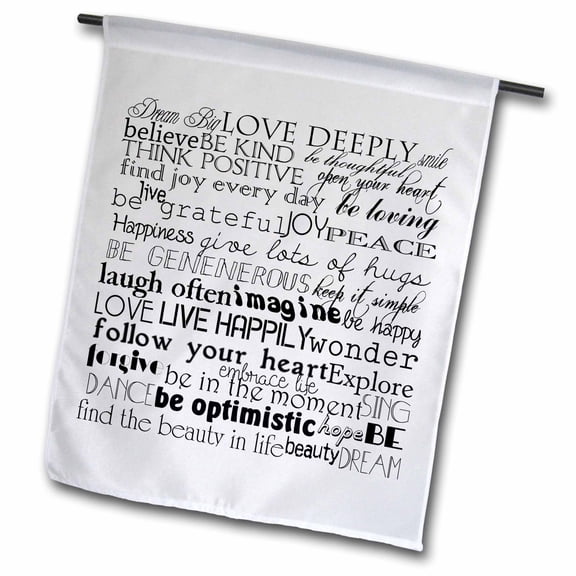 Dream Big LOVE DEEPLY smile
believe BE KIND be thoughtful
THINK POSITIVE open your heart
find joy every day be loving
live
be grateful JOY PEACE
Happiness give lots of hugs
BE GENENEROUS keep it simple
laugh often imagine be happy
LOVE LIVE HAPPILY wonder
follow your heart Explore
embrace life
forgive be in the moment SING
DANCE be optimistic hope BE
find the beauty in life beauty DREAM